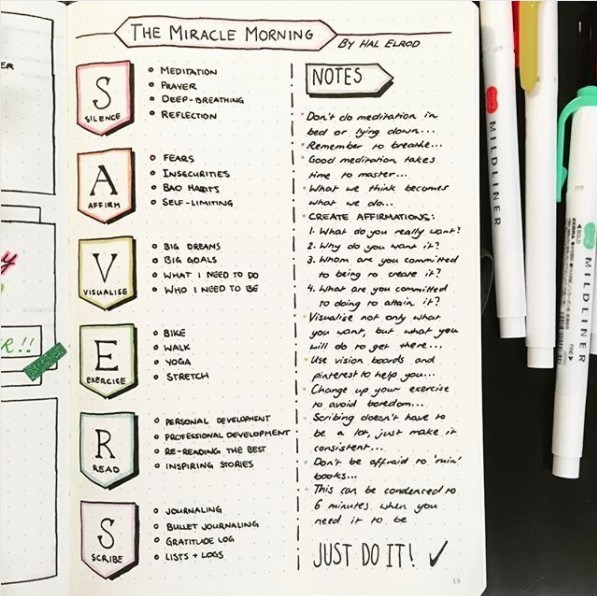 THE MIRACLE MORNING
BY HAL ELROD
S
SILENCE
MEDITATION
PRAYER
DEEP-BREATHING
REFLECTION
A
AFFIRM
FEARS
INSECURITIES
BAD HABITS
SELF-LIMITING
V
VISUALISE
BIG DREAMS
BIG GOALS
WHAT I NEED TO DO
WHO I NEED TO BE
E
EXERCISE
BIKE
WALK
YOGA
STRETCH
R
READ
PERSONAL DEVELOPMENT
PROFESSIONAL DEVELOPMENT
RE-READING THE BEST
INSPIRING STORIES
S
SCRIBE
JOURNALING
BULLET JOURNALING
GRATITUDE LOG
LISTS + LOGS
NOTES
Don't do meditation in
bed or lying down...
Remember to breathe...
Good meditation takes
time to master...
What we think becomes
what we do...
CREATE AFFIRMATIONS:
1. What do you really want?
2. Why do you want it?
3. Whom are you committed
to being to create it?
4. What are you committed
to doing to attain it?
Visualise not only what
you want, but what you
will do to get there...
Use vision boards and
pinterest to help you...
Change up your exercise
to avoid boredom...
Scribing doesn't have to
be a lot, just make it
consistent...
Don't be affraid to 'ruin'
books...
This can be condenced to
6 minutes when you
need it to be
JUST DO IT! ✓
19
ER
y
R!!
MILDLINER
MILDLINER